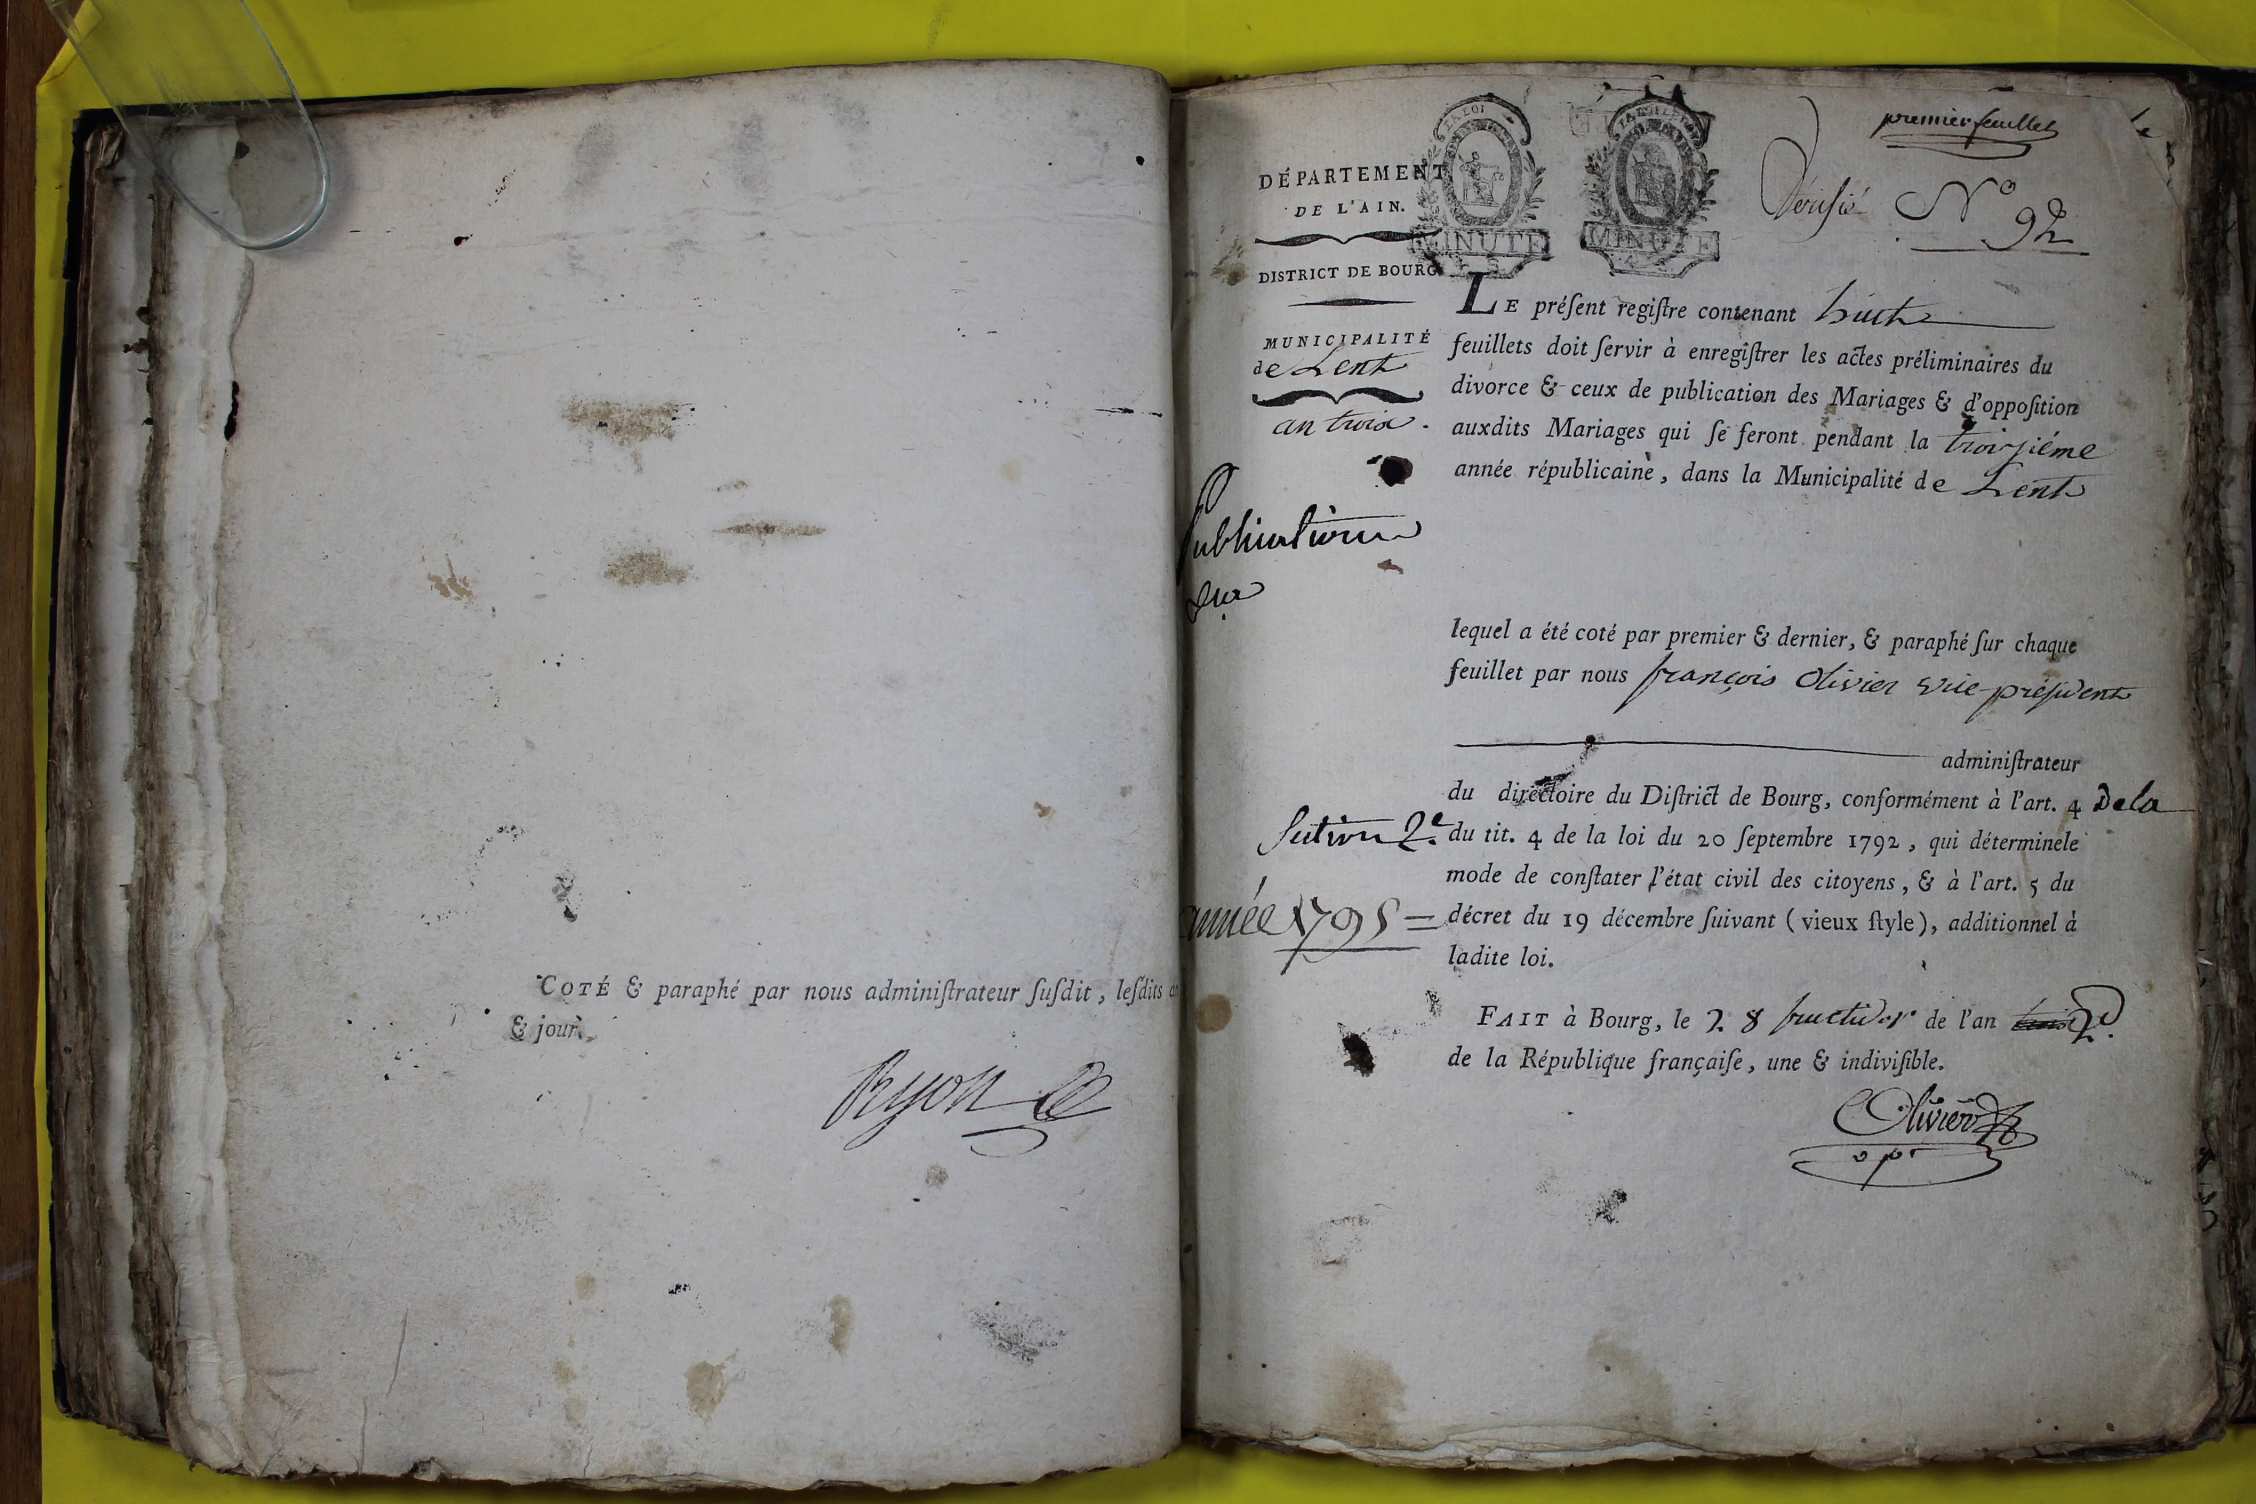 COTÉ & paraphé par nous adminiſtrateur ſuſdit, leſdits an
& jour.
premier feuillet
LA LOI
MINUTE
MINUTE
Vérifié
N° 92
DÉPARTEMENT
DE L'AIN.
DISTRICT DE BOURG
MUNICIPALITÉ
de Lent
an trois.
Publication
année 1795 =
LE préſent regiſtre contenant huit
feuillets doit ſervir à enregiſtrer les actes préliminaires du
divorce & ceux de publication des Mariages & d'oppoſition
auxdits Mariages qui ſe feront pendant la troiſiéme
année républicaine, dans la Municipalité de Lent
lequel a été coté par premier & dernier, & paraphé ſur chaque
feuillet par nous françois Olivier vice-préſident
adminiſtrateur
du directoire du Diſtrict de Bourg, conformément à l'art. 4 de la
Section 2.e du tit. 4 de la loi du 20 ſeptembre 1792, qui déterminele
mode de conſtater l'état civil des citoyens, & à l'art. 5 du
décret du 19 décembre ſuivant (vieux ſtyle), additionnel à
ladite loi.
FAIT à Bourg, le 28 fructidor de l'an trois 2.d
de la République françaiſe, une & indiviſible.
Olivier
v pt